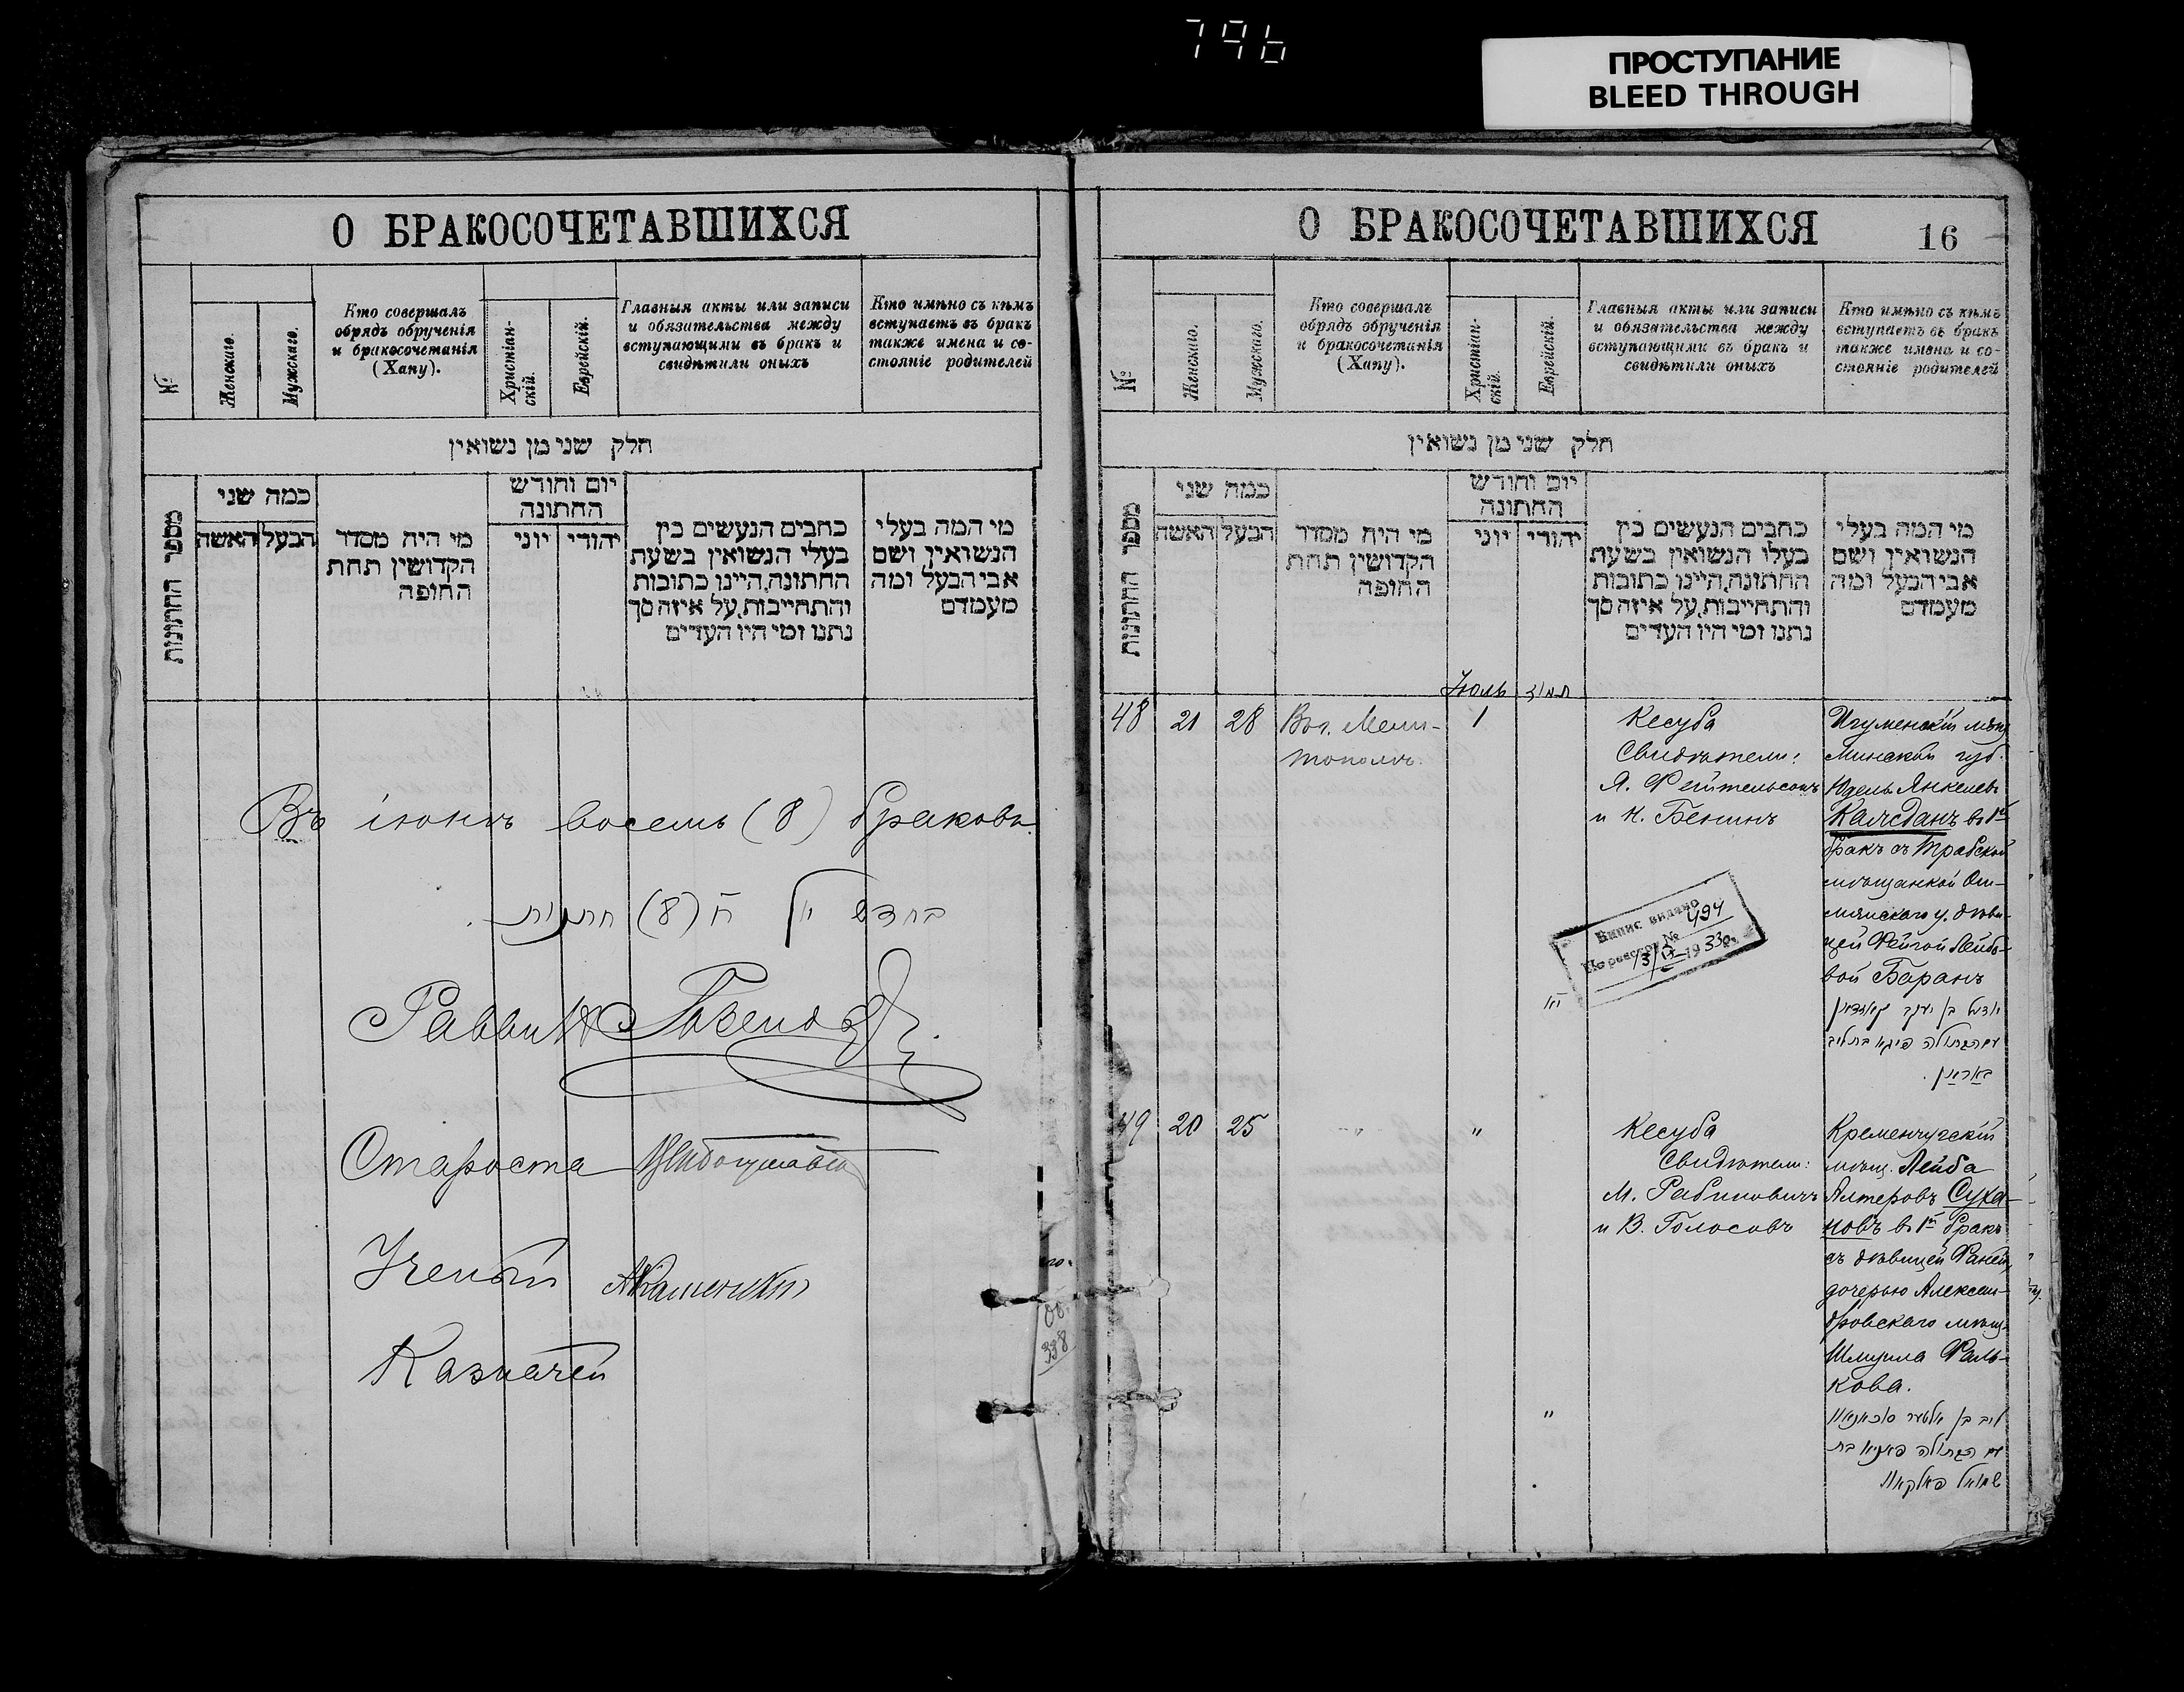 796
ПРОСТУПАНИЕ
BLEED THROUGH
О БРАКОСОЧЕТАВШИХСЯ
№
Женскаго.
Мужскаго.
Кто совершалъ
обрядъ обрученія
и бракосочетанія
(Хапу).
Христіан-
скій.
Еврейскій.
Главныя акты или записи
и обязательства между
вступающими въ бракъ и
свидѣтили оныхъ
Кто имѣно съ кѣмъ
вступаетъ въ бракъ
также имена и со-
стояніе родителей
חלק שני מן נשואין
מספר החתונות
כמה שני
האשה
הבעל
מי היה מסדר
הקדושין תחת
החופה
יום וחודש
החתונה
יוני
יהודי
כתבים הנעשים בין
בעלי הנשואין בשעת
החתונה,היינו כתובות
והתחייבות,על איזה סך
נתנו ומי היו העדים
מי המה בעלי
הנשואין ושם
אבי הבעל ומה
מעמדם
Въ іюнѣ восемь (8) браковъ
בחדש יוני ח (8) חתנות
Раввинъ
Староста
Ученый АКаменскій
Казначей
338
О БРАКОСОЧЕТАВШИХСЯ
16
№
Женскаго.
Мужскаго.
Кто совершалъ
обрядъ обрученія
и бракосочетанія
(Хапу).
Христіан-
скій.
Еврейскій.
Главныя акты или записи
и обязательства между
вступающими въ бракъ и
свидѣтили оныхъ
Кто имѣно съ кѣмъ
вступаетъ въ бракъ
также имена и со-
стояніе родителей
חלק שני מן נשואין
מספר החתונות
כמה שני
האשה
הבעל
מי היה מסדר
הקדושין תחת
החופה
יום וחודש
החתונה
יוני
יהודי
כתבים הנעשים בין
בעלי הנשואין בשעת
החתונה,היינו כתובות
והתחייבות,על איזה סך
נתנו ומי היו העדים
מי המה בעלי
הנשואין ושם
אבי הבעל ומה
מעמדם
Іюль
תמוז
48 21 28
Въ г. Мели-
тополѣ.
1
Кесуба
Свидѣтели:
Я. Фейтельсонъ
и Н. Бенинъ
Игуменскій мѣщ.
Минской губ.
Юдель Янкелевъ
Калсданъ въ 1й
бракъ съ Трабской
мѣщанкой Ош-
мянскаго у. дѣви-
цей Фейгой Лейбо-
вой Баранъ
יודל בן יעקב קאזדאן
עם הבתולה פיגא בת ליב
באראן.
Випис видано
По реєстру № 494
13/IX 1933 р.
49 20 25
"
"
Кесуба
Свидѣтели:
М. Рабиновичъ
и В. Голосовъ
"
Кременчугскій
мѣщ. Лейба
Алтеровъ Суха-
новъ въ 1й бракъ
съ дѣвицей Фаней,
дочерью Алексан-
дровскаго мѣщ.
Шмуила Фаль-
кова.
ליב בן אלטער סוכאנאוו
עם הבתולה פאניא בת
שמואל פאלקאוו